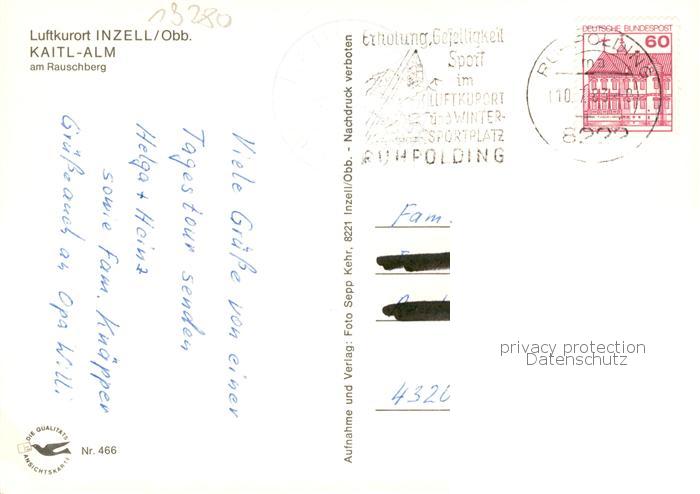 13280
Luftkurort INZELL/Obb.
KAITL-ALM
am Rauschberg
Viele Grüße von einer
Tagestour senden
Helga + Heinz
sowie Fam. Knäpper
Grüße auch an Opa Willi
DIE QUALITÄTS
ANSICHTSKARTE
Nr. 466
Aufnahme und Verlag: Foto Sepp Kehr, 8221 Inzell/Obb. - Nachdruck verboten
Erholung, Geselligkeit
Sport
im
LUFTKURORT
und WINTER-
SPORTPLATZ
RUHPOLDING
DEUTSCHE BUNDESPOST
60
RUHPOLDING
8222
Fam.
432
privacy protection
Datenschutz